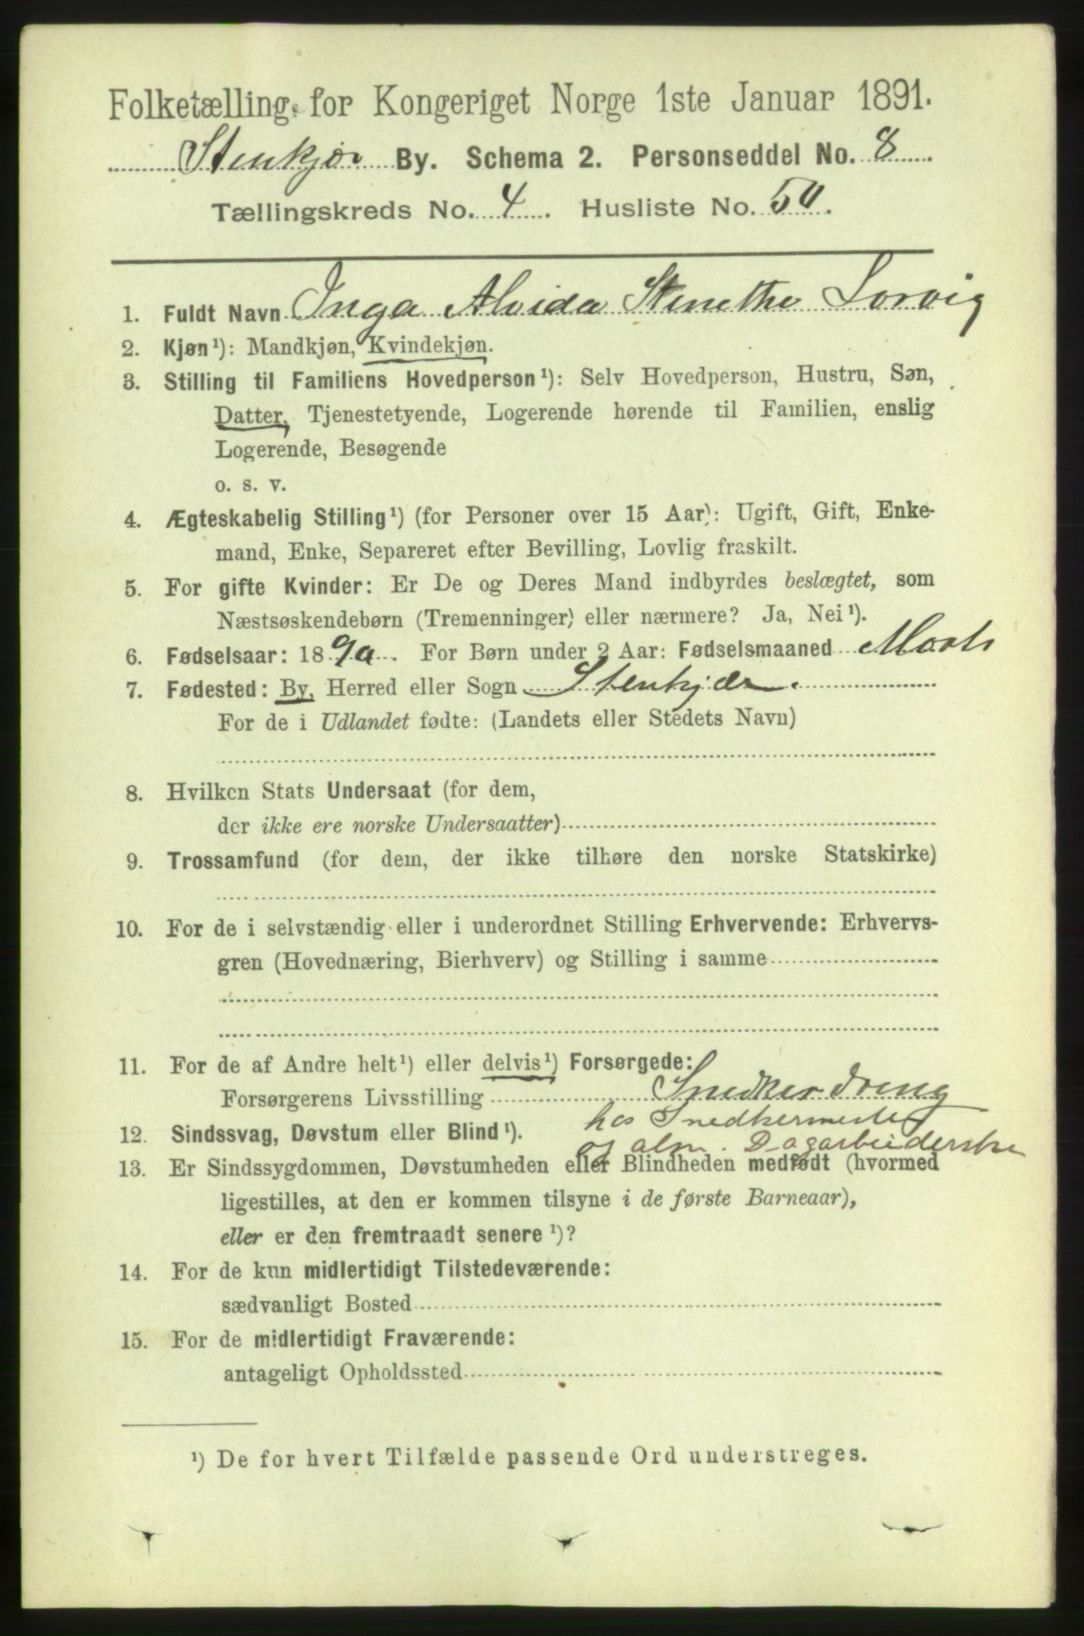 Folketælling for Kongeriget Norge 1ste Januar 1891.
Stenkjær By. Schema 2. Personseddel No. 8
Tællingskreds No. 4. Husliste No. 50.
1. Fuldt Navn Inga Alvida Lorvig
2. Kjøn¹): Mandkjøn, Kvindekjøn.
3. Stilling til Familiens Hovedperson¹): Selv Hovedperson, Hustru, Søn,
Datter, Tjenestetyende, Logerende hørende til Familien, enslig
Logerende, Besøgende
o. s. v.
4. Ægteskabelig Stilling¹) (for Personer over 15 Aar): Ugift, Gift, Enke-
mand, Enke, Separeret efter Bevilling, Lovlig fraskilt.
5. For gifte Kvinder: Er De og Deres Mand indbyrdes beslægtet, som
Næstsøskendebørn (Tremenninger) eller nærmere? Ja, Nei¹).
6. Fødselsaar: 1890. For Børn under 2 Aar: Fødselsmaaned Marts
7. Fødested: By, Herred eller Sogn Stenkjær.
For de i Udlandet fødte: (Landets eller Stedets Navn)
8. Hvilken Stats Undersaat (for dem,
der ikke ere norske Undersaatter)
9. Trossamfund (for dem, der ikke tilhøre den norske Statskirke)
10. For de i selvstændig eller i underordnet Stilling Erhvervende: Erhvervs-
gren (Hovednæring, Bierhverv) og Stilling i samme
11. For de af Andre helt¹) eller delvis¹) Forsørgede:
Forsørgerens Livsstilling Snedkerdreng
hos Snedkermester
12. Sindssvag, Døvstum eller Blind¹).
og alm. Dagarbeiderske
13. Er Sindssygdommen, Døvstumheden eller Blindheden medfødt (hvormed
ligestilles, at den er kommen tilsyne i de første Barneaar),
eller er den fremtraadt senere¹)?
14. For de kun midlertidigt Tilstedeværende:
sædvanligt Bosted
15. For de midlertidigt Fraværende:
antageligt Opholdssted
¹) De for hvert Tilfælde passende Ord understreges.